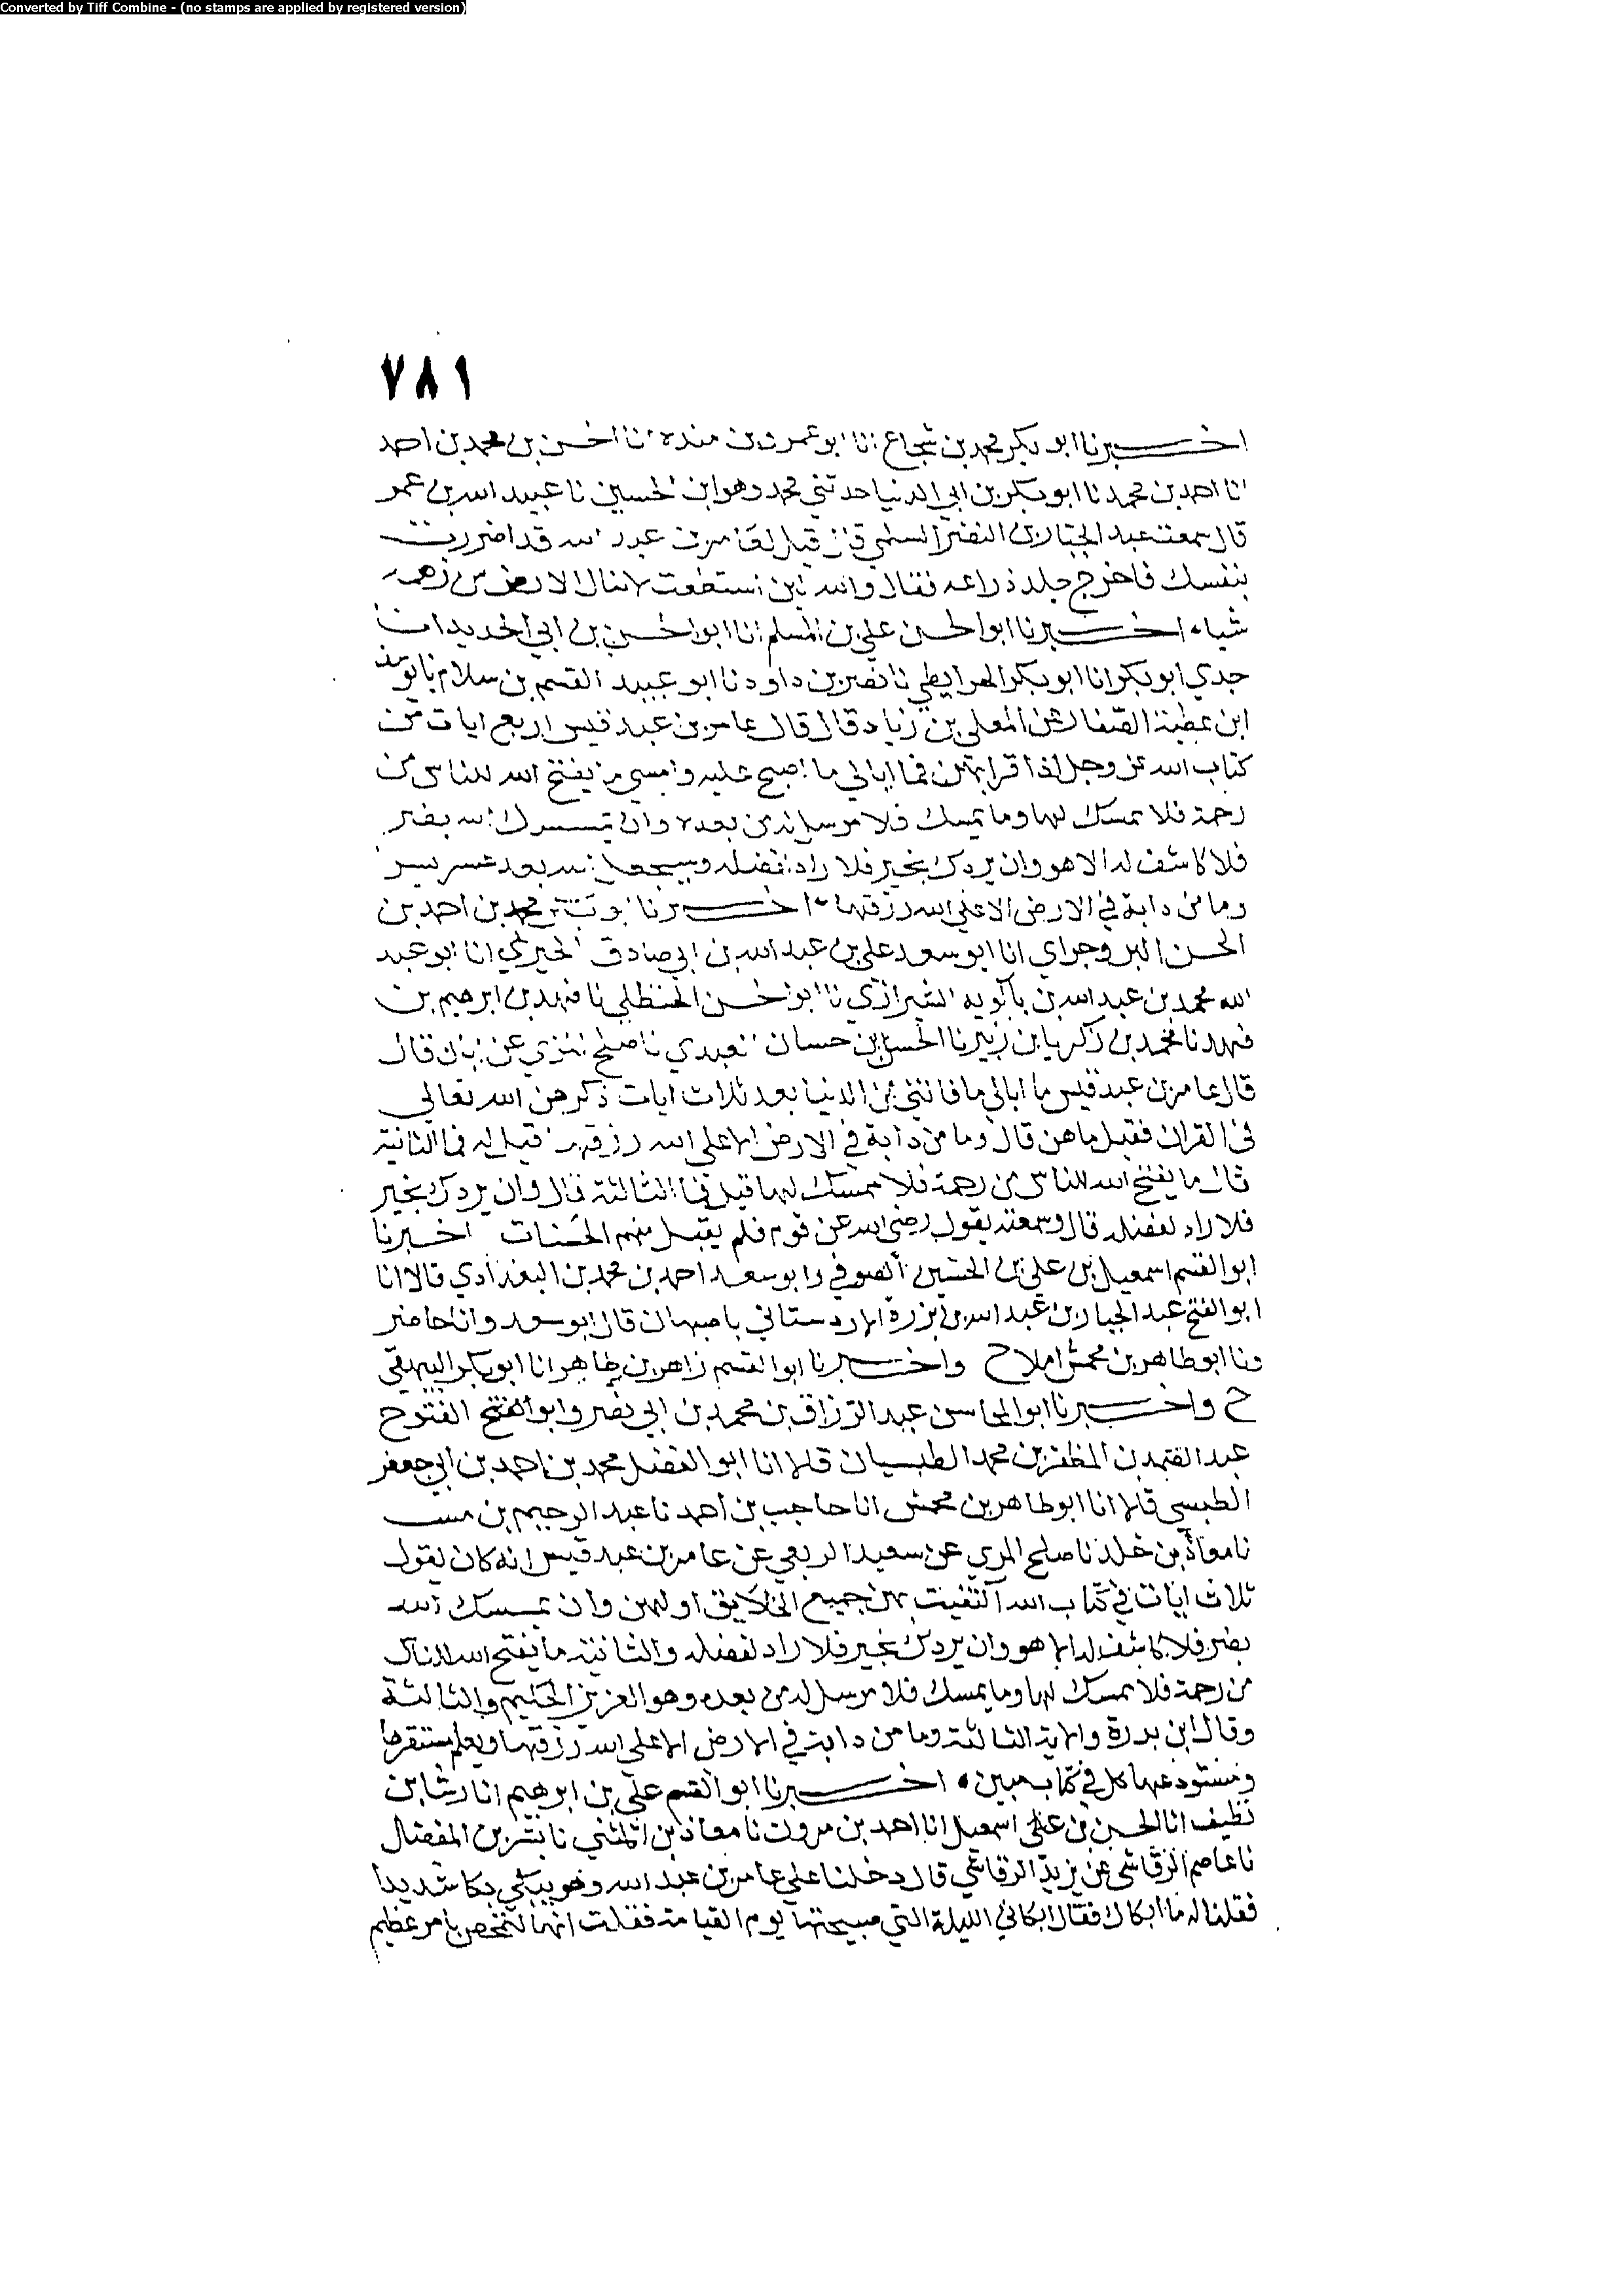 Converted by Tiff Combine - (no stamps are applied by registered version)
٧٨١
اخبرنا ابو بكر محمد بن شجاع انا ابو عمرو بن منده انا الحسن بن محمد بن احمد
انا احمد بن محمد نا ابو بكر بن ابي الدنيا حدثني محمد وهو ابن الحسين نا عبيد الله بن عمر
قال سمعت عبد الجبار بن النضر السلمي قال قيل لعامر بن عبد الله قد اضررت
بنفسك فاخرج جلد ذراعه فقال والله لين استطعت لا تنال الارض من زهمه
شياء اخبرنا ابو الحسن علي بن المسلم انا ابو الحسن بن ابي الحديد انا
جدي ابو بكر انا ابو بكر الخرايطي نا نصر بن داود نا ابو عبيد القسم بن سلام نا يوسف
ابن عطية الصفار عن المعلى بن زياد قال قال عامر بن عبد قيس اربع ايات من
كتاب الله عز وجل اذا قراتهن فما ابالي ما اصبح عليه وامسي ما يفتح الله للناس من
رحمة فلا ممسك لها وما يمسك فلا مرسل له من بعده وان يمسسك الله بضر
فلا كاشف له الا هو وان يردك بخير فلا راد لفضله وسيجعل الله بعد عسر يسر
وما من دابة في الارض الا على الله رزقها اخبرنا محمد بن احمد بن
الحسن البروجراي انا ابو سعد علي بن عبد الله بن ابي صادق الحيري انا ابو عبد
الله محمد بن عبد الله بن باكويه الشيرازي نا ابو الحسن الحنظلي نا فهد بن ابرهيم بن
فهد نا محمد بن زكريا بن زبير نا الحسن بن حسان العبدي نا صلح عن قال
قال عامر بن عبد قيس ما ابالي ما فاتني من الدنيا بعد ثلاث ايات ذكرهن الله تعالى
في القران فقيل ما هن قال وما من دابة في الارض الا على الله رزقها قيل له فما الثانية
قال ما يفتح الله للناس من رحمة فلا ممسك لها قيل فما الثالثة قال وان يردك بخير
فلا راد لفضله قال وسمعته يقول رضي الله عن قوم فلم يقبل منهم الحسنات اخبرنا
ابو القسم اسمعيل بن علي بن الحسين الصوفي وابو سعد احمد بن محمد بن البغدادي قالا انا
ابو الفتح عبد الجبار بن عبد الله بن برزة الاردستاني باصبهان قال ابو سعد وانا حاضر
ونا ابو طاهر بن محمش املا ح واخبرنا ابو القسم زاهر بن طاهر انا ابو بكر البيهقي
ح واخبرنا ابو المحاسن عبد الرزاق بن محمد بن ابي نصر وابو الفتح الفتوح
عبد الصمد بن المظفر بن محمد الطبسيان قالا انا ابو الفضل محمد بن احمد بن ابي جعفر
الطبسي قالا انا ابو طاهر بن محمش انا حاجب بن احمد نا عبد الرحيم بن منيب
نا معاذ بن خلد نا صلح المري عن سعيد الربعي عن عامر بن عبد قيس انه كان يقول
ثلاث ايات في كتاب الله اكتفيت بهن جميع الخلايق اولهن وان يمسسك الله
بضر فلا كاشف له الا هو وان يردك بخير فلا راد لفضله والثانية ما يفتح الله للناس
من رحمة فلا ممسك لها وما يمسك فلا مرسل له من بعده وهو العزيز الحكيم والثالثة
وقال ابن بدرة والاية الثالثة وما من دابة في الارض الا على الله رزقها ويعلم مستقرها
ومستودعها كل في كتاب مبين اخبرنا ابو القسم علي بن ابرهيم انا رشا بن
نظيف انا الحسن بن علي اسمعيل انا احمد بن مروان نا معاذ بن المثنى نا بشر بن المفضل
نا عاصم الرقاشي عن يزيد الرقاشي قال دخلنا على عامر بن عبد الله وهو يبكي بكا شديدا
فقلنا له ما ابكاك فقال ابكاني الليلة التي صبيحتها يوم القيامة فقلت انها لتمخض بامر عظيم